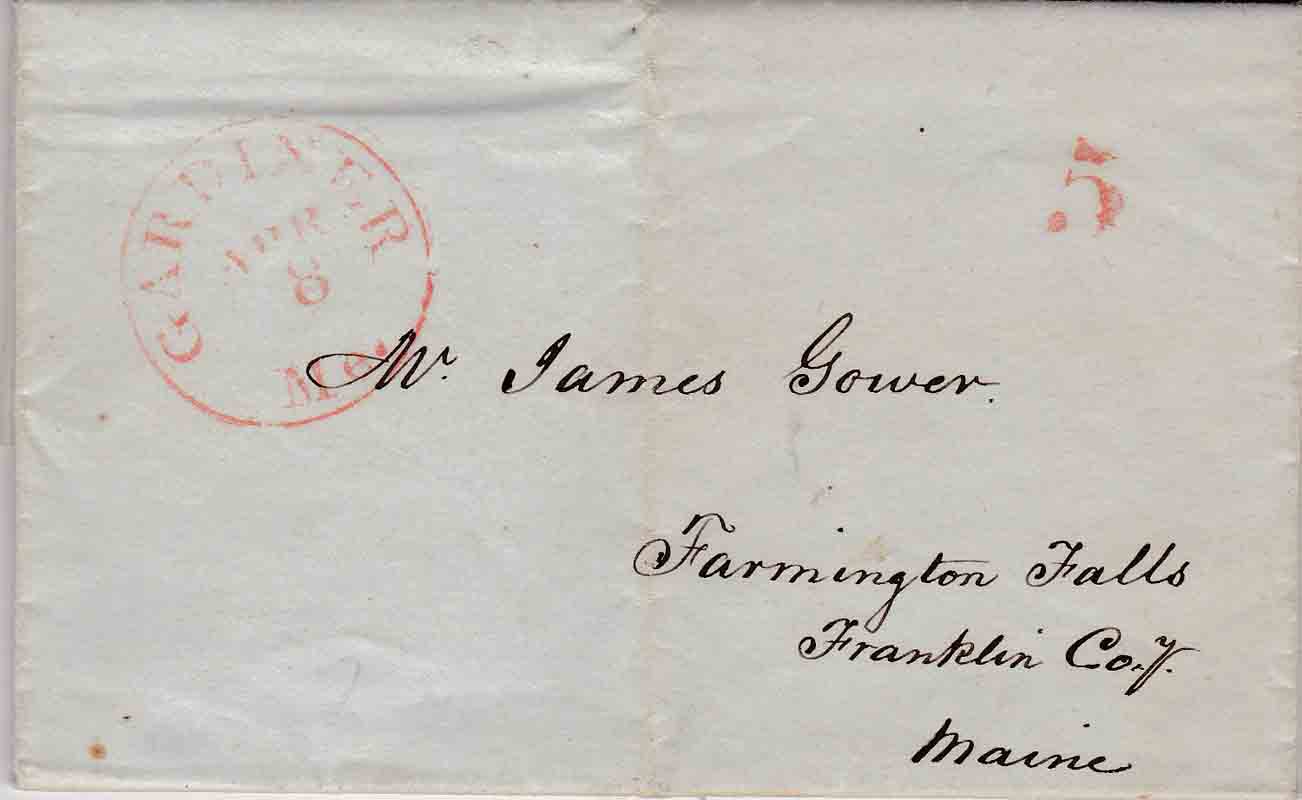 GARDINER
APR
8
Me.
5
Mr. James Gower.
Farmington Falls
Franklin Co.y.
Maine